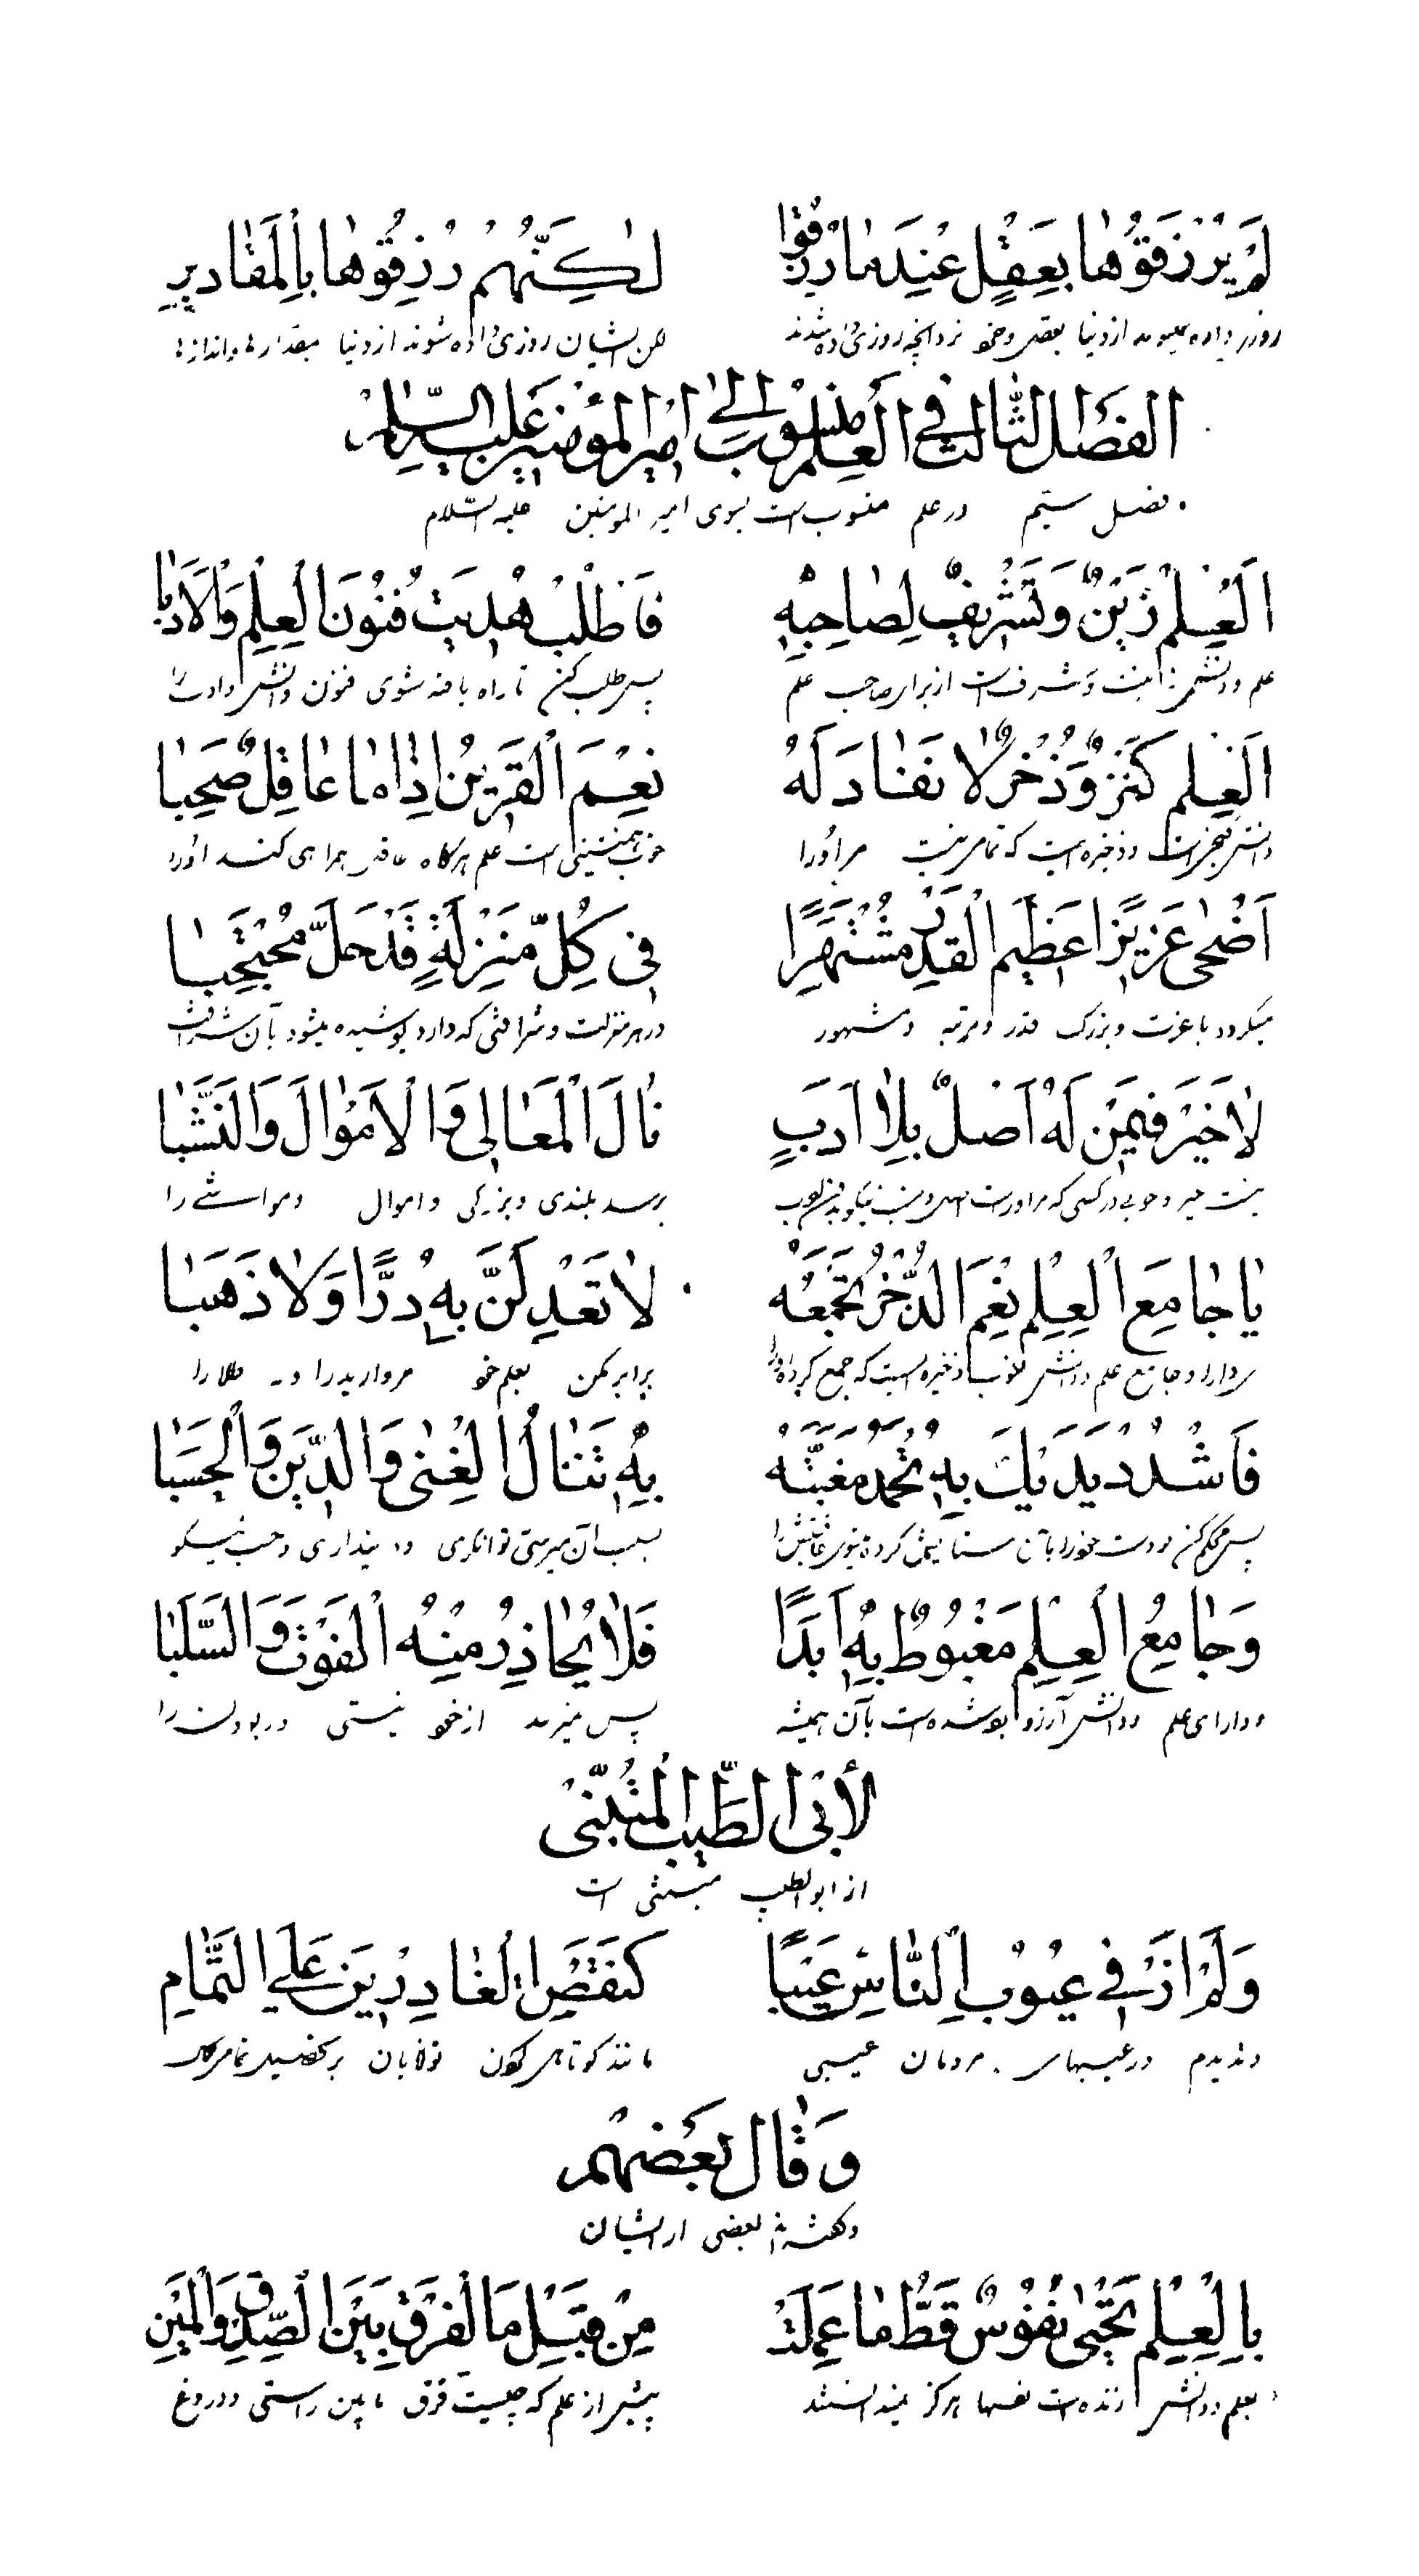 لَمْ يُرْزَقُوهَا بِعَقْلٍ عِنْدَمَا رُزِقُوا لٰكِنَّهُمْ رُزِقُوهَا بِالْمَقَادِيرِ
روزی داده از دنیا بعقل و خرد نزد آنچه روزی داده شدند لکن ایشان روزی داده شوند از دنیا بمقدارها و اندازها
الفَصْلُ الثَّالِثُ فِي الْعِلْمِ مَنْسُوبٌ إِلَى أَمِيرِ الْمُؤْمِنِينَ عَلَيْهِ السَّلَامُ
فصل سیّم در علم منسوب است بسوی امیر المومنین علیه السّلام
اَلْعِلْمُ زَيْنٌ وَتَشْرِيفٌ لِصَاحِبِهِ فَاطْلُبْ هُدِيتَ فُنُونَ الْعِلْمِ وَالْاَدَبَا
علم و دانش زینت و شرف است از برای صاحب علم پس طلب کن تا راه یافته شوی فنون دانش و ادب را
اَلْعِلْمُ كَنْزٌ وَذُخْرٌ لَا نَفَادَ لَهُ نِعْمَ الْقَرِينُ اِذَا مَا عَاقِلٌ صَحِبَا
دانش گنج است و ذخیره است که تمامی نیست مر او را خوب همنشینی است علم هرگاه عاقل همراهی کند او را
اَضْحٰى عَزِيزًا عَظِيمَ الْقَدْرِ مُشْتَهِرًا فِى كُلِّ مَنْزِلَةٍ قَدْ حَلَّ مُحْتَجِبَا
میگردد با عزت و بزرگ قدر و مرتبه و مشهور در هر منزلت و شرافتی که دارد پوشیده میشود بآن شرافت
لَا خَيْرَ فِيمَنْ لَهُ اَصْلٌ بِلَا اَدَبٍ نَالَ الْمَعَالِىَ وَالْاَمْوَالَ وَالنَّشَبَا
نیست خیر و خوبی در کسی که مر او راست اصل برسد بلندی و بزرگی و اموال و مواشی را
يَا جَامِعَ الْعِلْمِ نِعْمَ الذُّخْرُ تَجْمَعُهُ لَا تَعْدِلَنَّ بِهِ دُرًّا وَلَا ذَهَبَا
جامع علم و دانش خوب ذخیره است که جمع کرده برابر مکن بعلم خود مروارید را و نه طلا را
فَاشْدُدْ يَدَيْكَ بِهِ تُحْمَدْ مَغَبَّتُهُ بِهِ تَنَالُ الْغِنٰى وَالدِّينَ وَالْحَسَبَا
پس محکم کن دو دست خود را بآن ستایش کرده بسبب آن میرسی توانگری و دینداری و حسب نیکو
وَجَامِعُ الْعِلْمِ مَغْبُوطٌ بِهِ اَبَدًا فَلَا يُحَاذِرُ مِنْهُ الْفَوْتَ وَالسَّلَبَا
و دارای علم و دانش آرزو شده است بآن همیشه پس از خود نیستی و ربودن را
لِأَبِى الطَّيِّبِ الْمُتَنَبِّى
از ابو الطیب متنبّی است
وَلَمْ اَرَ فِي عُيُوبِ النَّاسِ عَيْبًا كَنَقْصِ الْقَادِرِينَ عَلَى التَّمَامِ
و ندیدم در عیبهای مردمان عیبی مانند کوتاهی کردن توانایان بر
وَقَالَ بَعْضُهُمْ
و گفته است بعضی از ایشان
بِالْعِلْمِ تَحْيٰى نُفُوسٌ قَطُّ مَا عَمِلَتْ مِنْ قَبْلُ مَا الْفَرْقُ بَيْنَ الصِّدْقِ وَالْمَيْنِ
بعلم و دانش زنده است نفسها هرگز ندانستند پیش از علم که چیست فرق مابین راستی و دروغ